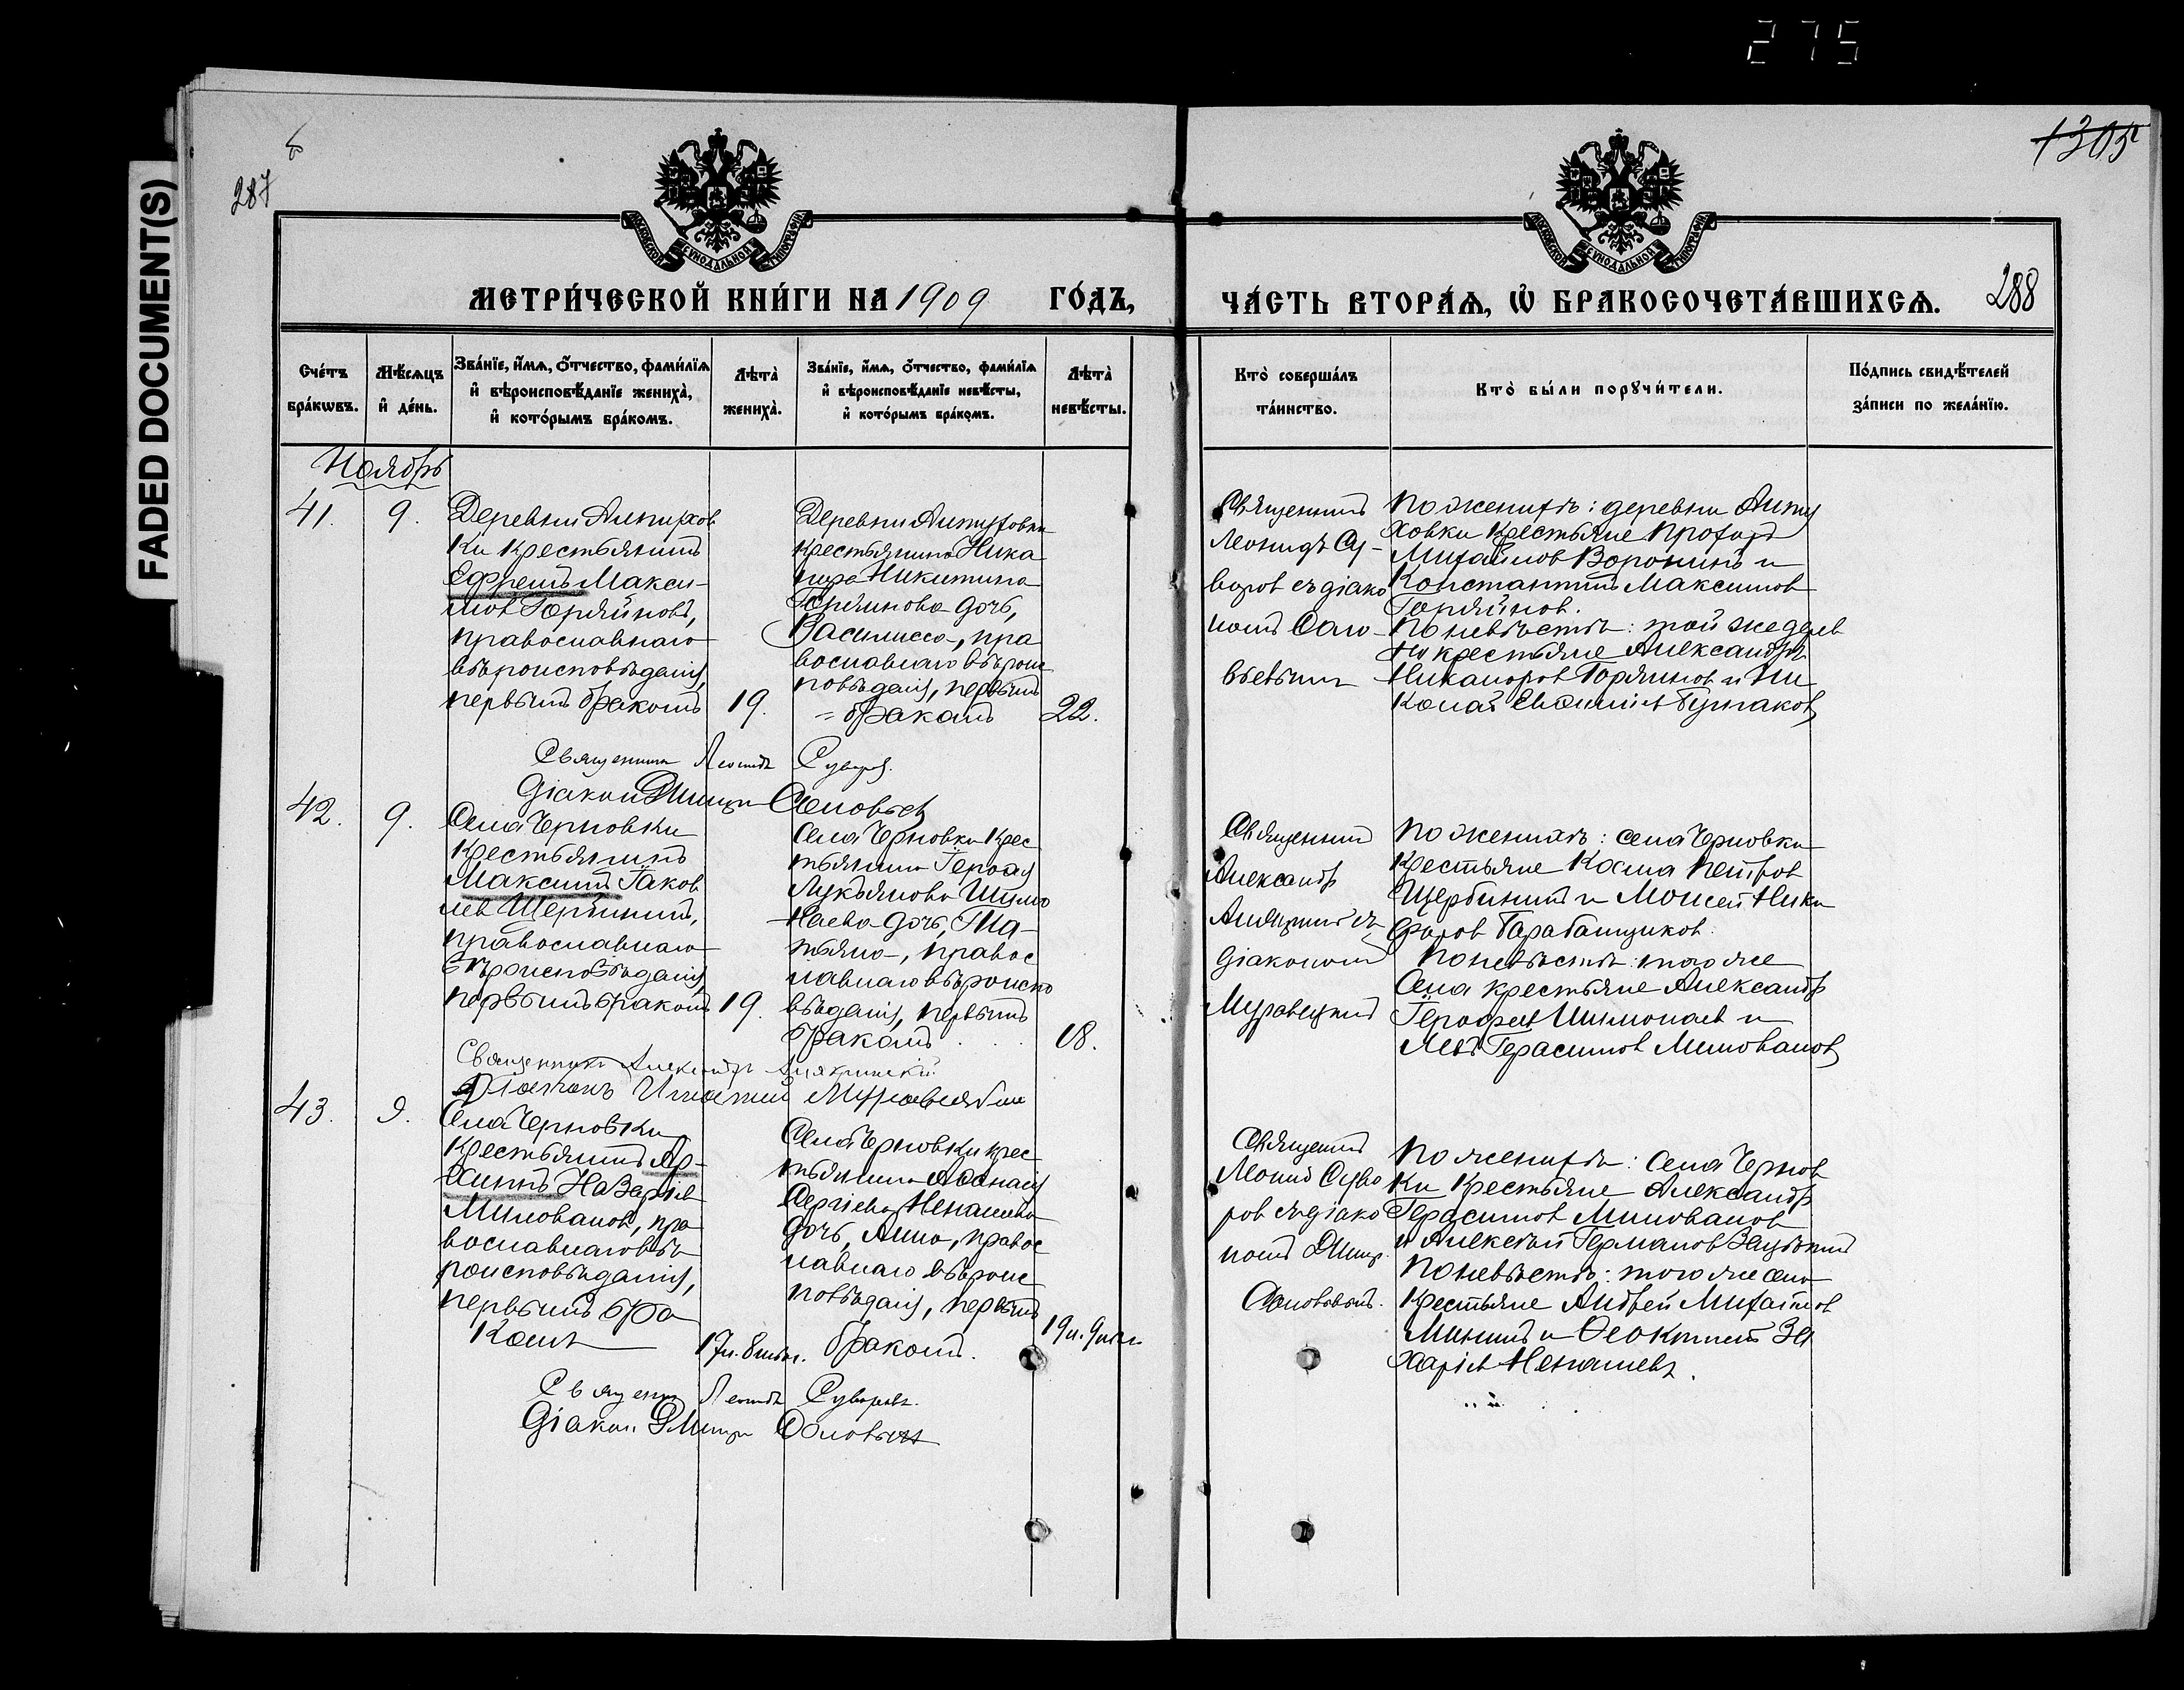 275
FADED DOCUMENT(S)
287
1305
288
МОСКОВСКОЙ СѴНОДАЛЬНОЙ ТИПОГРАФІИ
МОСКОВСКОЙ СѴНОДАЛЬНОЙ ТИПОГРАФІИ
МЕТРИ́ЧЕСКОЙ КНИ́ГИ НА 1909 ГО́ДЪ,
ЧА́СТЬ ВТОРА́Ѧ, Ѡ҆ БРАКОСОЧЕТА́ВШИХСѦ.
Сче́тъ бра́кѡвъ.
Мѣ́сѧцъ и҆ де́нь.
Зва́нїе, и҆́мѧ, ѻ҆́тчество, фами́лїѧ и҆ вѣроисповѣ́данїе жениха̀, и҆ кото́рымъ бра́комъ.
Лѣта̀ жениха̀.
Зва́нїе, и҆́мѧ, ѻ҆́тчество, фами́лїѧ и҆ вѣроисповѣ́данїе невѣ́сты, и҆ кото́рымъ бра́комъ.
Лѣта̀ невѣ́сты.
Кто̀ соверша́лъ та́инство.
Кто̀ бы́ли порꙋчи́тели.
По́дпись свидѣ́телей за́писи по жела́нїю.
Ноябрь
41.
9.
Деревни Алтухов
ки крестьянинъ
Ефремъ Макси-
мов Горяйновъ,
православнаго
вѣроисповѣданія,
первымъ бракомъ
19.
Деревни Алтуховки
крестьянина Ника
нора Никитина
Горяинова дочь,
Василисса, пра
вославнаго вѣроис
повѣданія, первымъ
= бракомъ
22.
Священникъ
Леонидъ Су-
воров съ діако
номъ Соло-
вьевымъ
По женихѣ: деревни Алту
ховки крестьяне Прохоръ
Михайлов Воронинъ и
Константинъ Максимов
Горяйнов.
По невѣстѣ: той же дерев
ни крестьяне Александръ
Никаноров Горяинов и Ни
колай Булгаков
Священникъ Леонидъ Суворов.
Діакон Димитри Соловьев
42.
9.
Села Черновки
крестьянинъ
Максимъ Іаков
лев Щербининъ,
православнаго
вѣроисповѣданія,
первымъ бракомъ
19.
Села Черновки крес
тьянина Іерофея
Лукьянова Шимо
наева дочь, Та-
тьяна, правос
лавнаго вѣроиспо
вѣданія, первымъ
бракомъ
18.
Священникъ
Александръ
съ
діакономъ
Муравецкимъ
По женихѣ: села Черновки
крестьяне Косма Петров
Щербининъ и Моисей Ники
форов Барабанщиков.
По невѣстѣ: того же
села крестьяне Александръ
Іерофеев Шимонаев и
Левъ Герасимов Милованов
Священникъ Александръ
Діаконъ Игнатий
43.
9.
Села Черновки
крестьянинъ Ар-
Назаріев
Милованов, пра
вославнаго вѣ
роисповѣданія,
первымъ бра
комъ
17л. 8 мѣс.
Села Черновки крес
тьянина Аѳанасія
Сергіева Ненашева
дочь, Анна, правос
лавнаго вѣроис
повѣданія, первымъ
бракомъ.
19л. 9 мѣс.
Священникъ
Леонид Суво
ров съ діако
номъ Димитр.
Соловьевымъ.
По женихѣ: села Чернов
ки крестьяне Александръ
Герасимов Милованов
и Алексѣй Германов
По невѣстѣ: того же села
крестьяне Андрей Михайлов
и Ѳеоктистъ За
харіев Ненашевъ.
Священник Леонидъ Суворовъ.
Діакон Димитри Соловьевъ